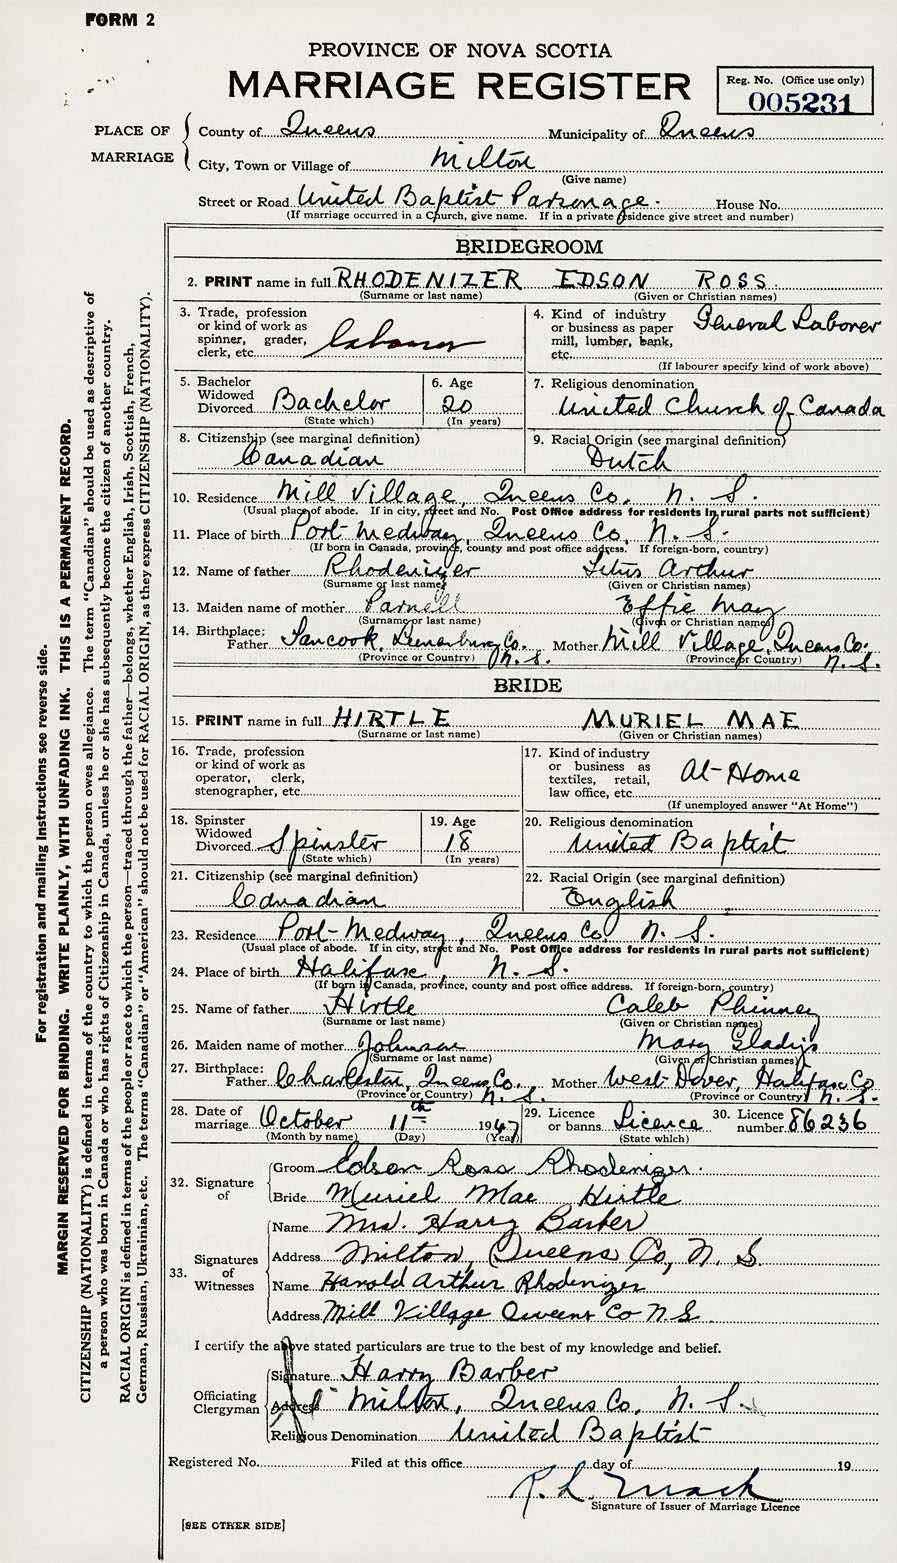 FORM 2
PROVINCE OF NOVA SCOTIA
MARRIAGE REGISTER
Reg. No. (Office use only)
005231
PLACE OF MARRIAGE
County of Queens Municipality of Queens
City, Town or Village of Milton
(Give name)
Street or Road United Baptist Parsonage. House No.
(If marriage occurred in a Church, give name. If in a private residence give street and number)
BRIDEGROOM
2. PRINT name in full RHODENIZER EDSON ROSS
(Surname or last name) (Given or Christian names)
3. Trade, profession
or kind of work as
spinner, grader,
clerk, etc. Laborer
4. Kind of industry
or business as paper
mill, lumber, bank,
etc. General Laborer
(If labourer specify kind of work above)
5. Bachelor
Widowed
Divorced Bachelor
(State which)
6. Age
20
(In years)
7. Religious denomination
United Church of Canada
8. Citizenship (see marginal definition)
Canadian
9. Racial Origin (see marginal definition)
Dutch
10. Residence Mill Village, Queens Co. N. S.
(Usual place of abode. If in city, street and No. Post Office address for residents in rural parts not sufficient)
11. Place of birth Port Medway, Queens Co, N. S.
(If born in Canada, province, county and post office address. If foreign-born, country)
12. Name of father Rhodenizer Titus Arthur
(Surname or last name) (Given or Christian names)
13. Maiden name of mother Parnell Effie May
(Surname or last name) (Given or Christian names)
14. Birthplace:
Father Tancook, Lunenburg Co. N. S. Mother Mill Village, Queens Co. N. S.
(Province or Country) (Province or Country)
BRIDE
15. PRINT name in full HIRTLE MURIEL MAE
(Surname or last name) (Given or Christian names)
16. Trade, profession
or kind of work as
operator, clerk,
stenographer, etc.
17. Kind of industry
or business as
textiles, retail,
law office, etc. At-Home
(If unemployed answer "At Home")
18. Spinster
Widowed
Divorced Spinster
(State which)
19. Age
18
(In years)
20. Religious denomination
United Baptist
21. Citizenship (see marginal definition)
Canadian
22. Racial Origin (see marginal definition)
English
23. Residence Port-Medway, Queens Co, N. S.
(Usual place of abode. If in city, street and No. Post Office address for residents in rural parts not sufficient)
24. Place of birth Halifax, N. S.
(If born in Canada, province, county and post office address. If foreign-born, country)
25. Name of father Hirtle Caleb Phinney
(Surname or last name) (Given or Christian names)
26. Maiden name of mother Johnson Mary Gladys
(Surname or last name) (Given or Christian names)
27. Birthplace:
Father Charleston, Queens Co. N. S. Mother West Dover, Halifax Co N. S.
(Province or Country) (Province or Country)
28. Date of
marriage October 11th 1947
(Month by name) (Day) (Year)
29. Licence
or banns Licence
(State which)
30. Licence
number 86236
32. Signature of
Groom Edson Ross Rhodenizer.
Bride Muriel Mae Hirtle
33. Signatures of Witnesses
Name Mrs. Harry Barber
Address Milton, Queens Co, N. S.
Name Harold Arthur Rhodenizer
Address Mill Village Queens Co N.S
I certify the above stated particulars are true to the best of my knowledge and belief.
Officiating Clergyman
Signature Harry Barber
Address Milton, Queens Co, N. S.
Religious Denomination United Baptist
Registered No. Filed at this office day of 19
R. L. Mack
Signature of Issuer of Marriage Licence
[SEE OTHER SIDE]
For registration and mailing instructions see reverse side.
MARGIN RESERVED FOR BINDING. WRITE PLAINLY, WITH UNFADING INK. THIS IS A PERMANENT RECORD.
CITIZENSHIP (NATIONALITY) is defined in terms of the country to which the person owes allegiance. The term "Canadian" should be used as descriptive of
a person who was born in Canada or who has rights of Citizenship in Canada, unless he or she has subsequently become the citizen of another country.
RACIAL ORIGIN is defined in terms of the people or race to which the person—traced through the father—belongs, whether English, Irish, Scottish, French,
German, Russian, Ukrainian, etc. The terms "Canadian" or "American" should not be used for RACIAL ORIGIN, as they express CITIZENSHIP (NATIONALITY).